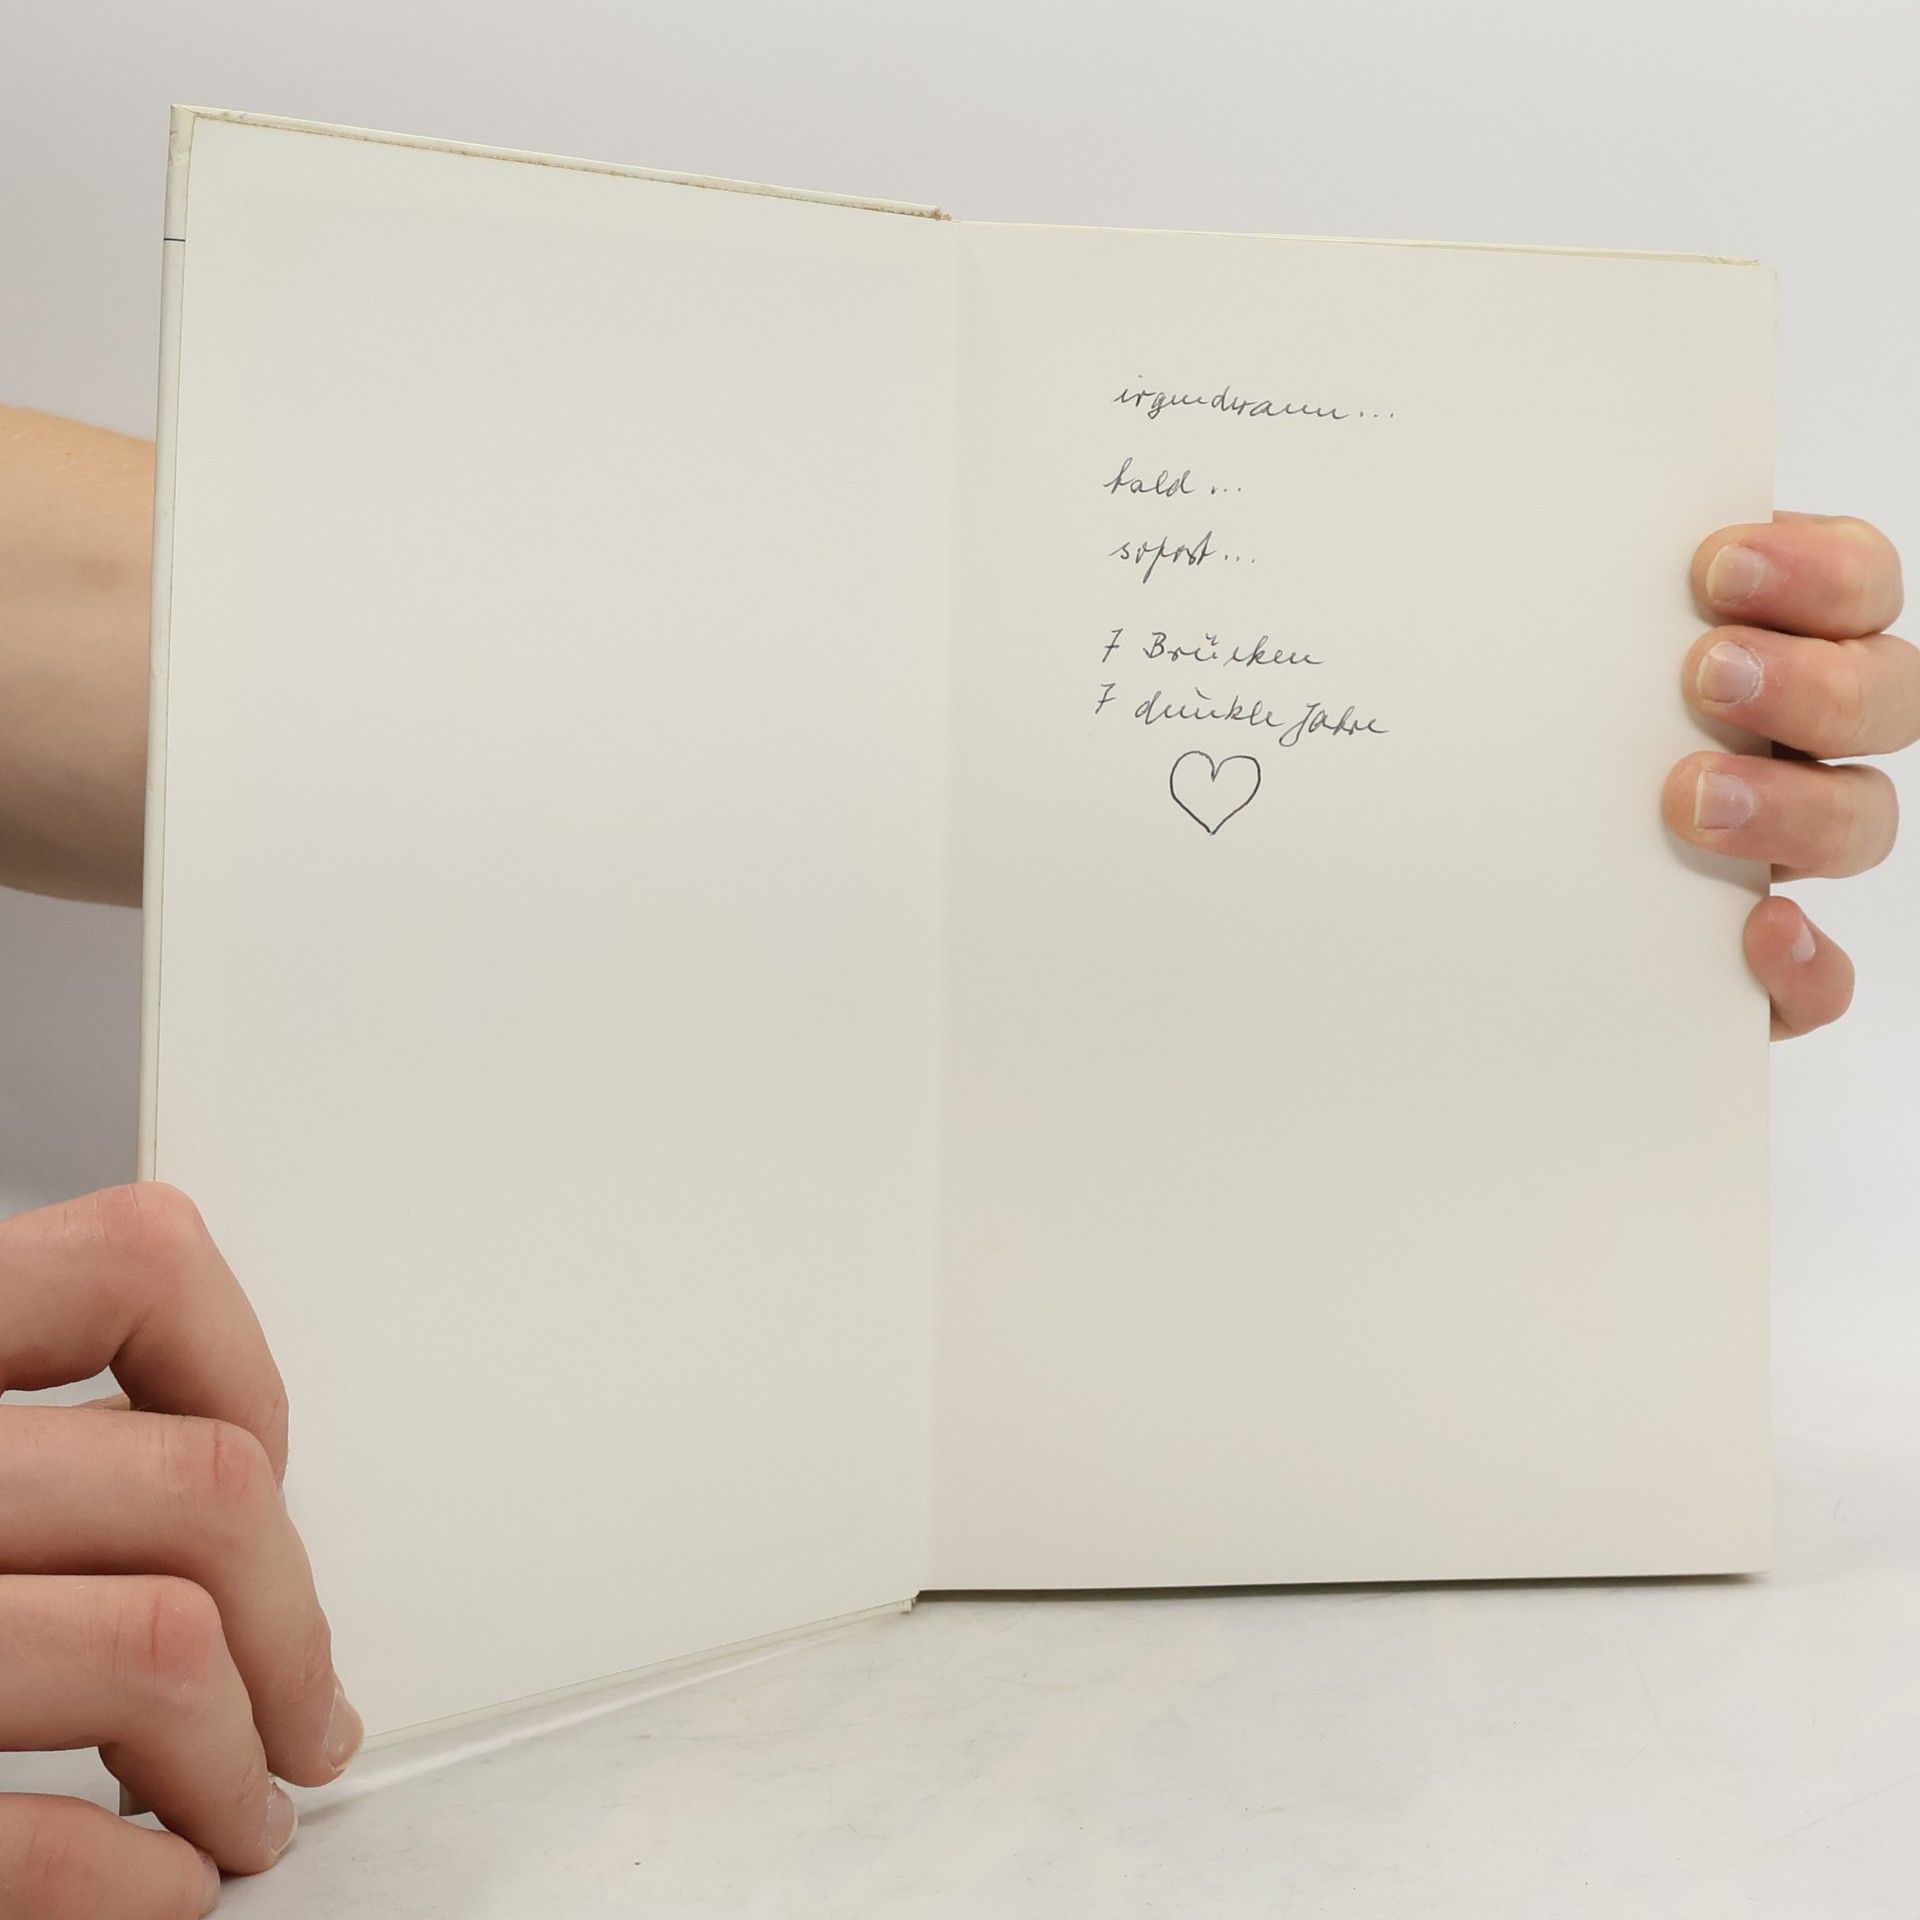 irgendwann...
bald...
sofort...
7 Brücken
7 dunkle Jahre